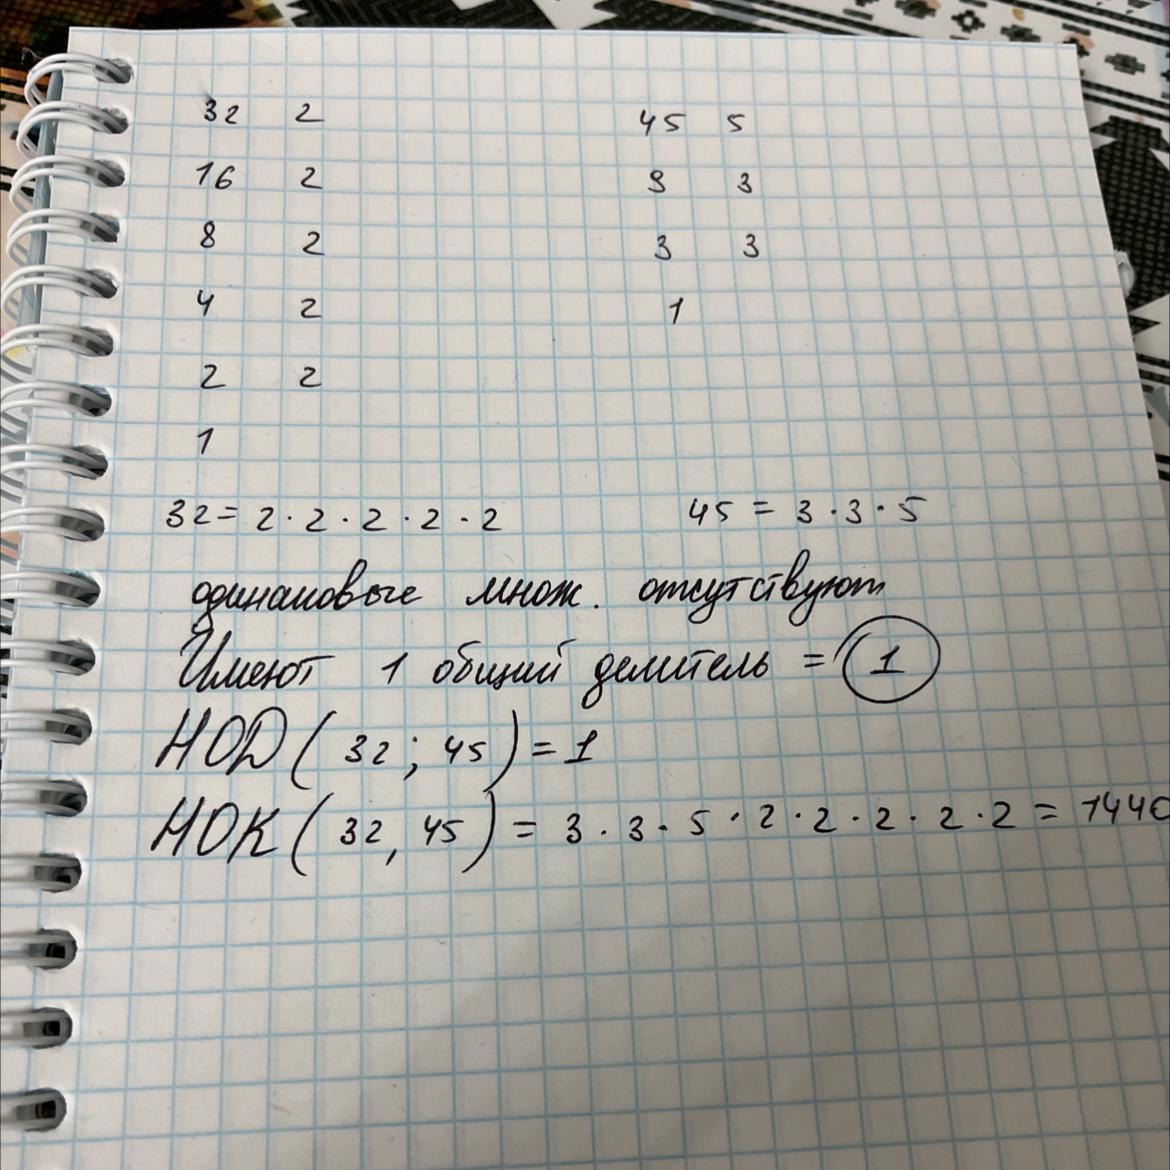 32 2 45 5
16 2 9 3
8 2 3 3
4 2 1
2 2
1
32 = 2 · 2 · 2 · 2 · 2 45 = 3 · 3 · 5
одинаковые множ. отсутствуют
Имеют 1 общий делитель = 1
НОD ( 32 ; 45 ) = 1
НОК ( 32, 45 ) = 3 · 3 · 5 · 2 · 2 · 2 · 2 · 2 = 1440